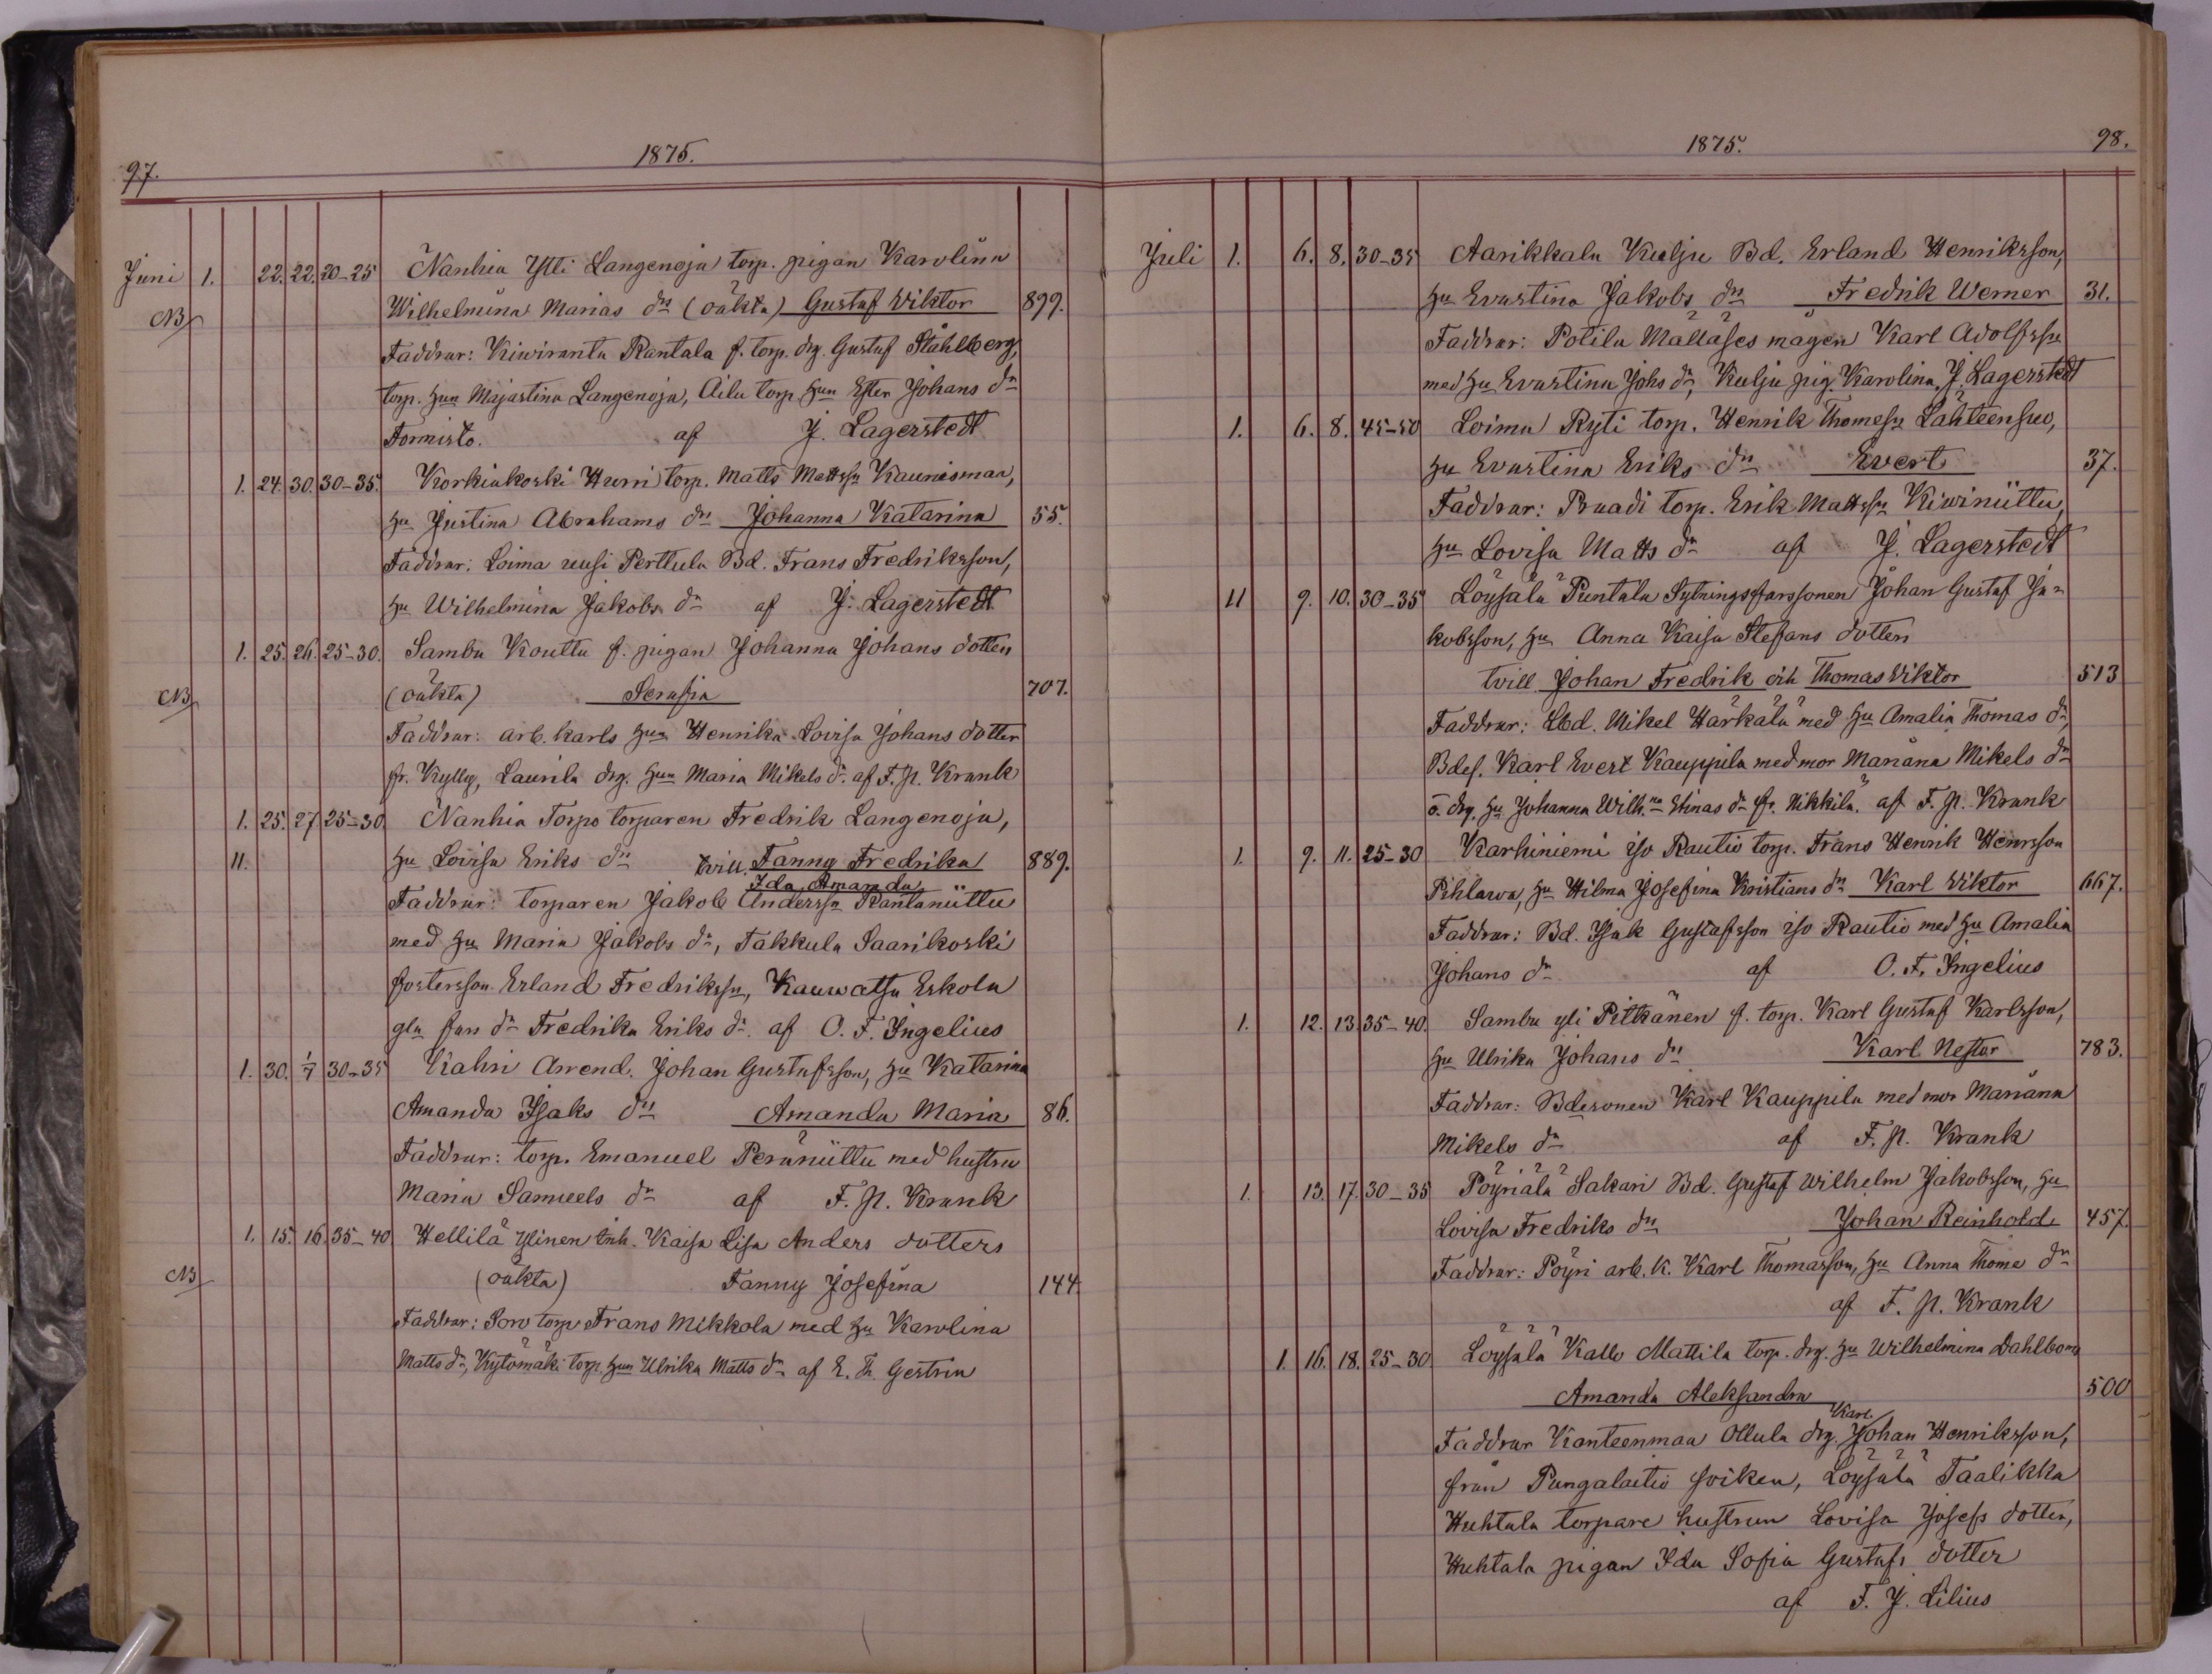 97.
1875.
Juni 1. 22. 22. 20-25 Nanhia Ylli Langenoja torp. pigan Karolina
NB Wilhelmina Marias dr (oäkta) Gustaf Viktor 899.
Faddrar: Kiwiranta Rantala f. torp. drg. Gustaf Ståhlberg,
torp. hun Majastina Langenoja, Aila torp. hun Ester Johans dr
Tormisto. af J. Lagerstedt
1. 24. 30. 30-35. Korkiakoski Hurri torp. Matts Mattssn Kaunismaa,
hu Justina Abrahams dr Johanna Katarina 55.
Faddrar: Loima uusi Perttula Bd. Frans Fredriksson,
hu Wilhelmina Jakobs dr af J. Lagerstedt
1. 25. 26. 25-30. Sambu Kouttu f. pigan Johanna Johans dotter
NB (oäkta) Serafia 707.
Faddrar: arb. karls hun Henrika Lovisa Johans dotter
fr. Kylly, Laurila drg. hun Maria Mikels dr af F. N. Krank
1. 25. 27. 25-30. Nanhia Torpo torparen Fredrik Langenoja,
11. hu Lovisa Eriks dr tvill. Fanny Fredrika 889.
Ida Amanda
Faddrar: torparen Jakob Anderssn Rantaniittu
med hu Maria Jakobs dr, Takkula Saarikoski
fosterson Erland Fredrikssn, Kauwatsa Eskola
gla fars dr Fredrika Eriks dr af O. F. Ingelius
1. 30. 1/7 30-35 Kahri Arrend. Johan Gustafsson, hu Katarina
Amanda Isaks dr Amanda Maria 86.
Faddrar: torp. Emanuel Peräniittu med hustru
Maria Samuels dr af F. N. Krank
1. 15. 16. 35-40 Hellilä Ylinen inh. Kaisa Lisa Anders dotters
NB (oäkta) Fanny Josefina 144.
Faddrar: Soro torp. Frans Mikkola med hu Karolina
Matts dr, Kytömäki torp. hun Ulrika Matts dr af E. Th. Gestrin
1875.
98.
Juli 1. 6. 8. 30-35 Aarikkala Kulju Bd. Erland Henriksson,
hu Evastina Jakobs dr Fredrik Werner 31.
Faddrar: Potila Mällåses mågen Karl Adolfssn
med hu Evastina Johs dr, Kulju pig. Karolina, J. Lagerstedt
1. 6. 8. 45-50 Loima Ryti torp. Henrik Thomesn Lähteensuo,
hu Evastina Eriks dr Evert 37.
Faddrar: Pruadi torp. Erik Mattssn Kiwiniittu,
hu Lovisa Matts dr af J. Lagerstedt
11 9. 10. 30-35 Löysälä Puntala Sytningsfarssonen Johan Gustaf Ja-
kobsson, hu Anna Kaisa Stefans dotter
tvill Johan Fredrik och Thomas Viktor 513
Faddrar: Lbd. Mikel Härkälä med hu Amalia Thomas dr,
Bdes. Karl Evert Kauppila med mor Mariana Mikels dr
o. drg. hu Johanna Wilh.na Stinas dr fr. Nikkilä. af F. N. Krank
1. 9. 11. 25-30 Karhiniemi iso Rautio torp. Frans Henrik Henrsson
Pihlawa, hu Hilma Josefina Kristians dr Karl Viktor 667.
Faddrar: Bd. Isak Gustafsson iso Rautio med hu Amalia
Johans dr af O. F. Ingelius
1. 12. 13. 35-40. Sambu yli Pitkänen f. torp. Karl Gustaf Karlsson,
hu Ulrika Johans dr Karl Nestor 783.
Faddrar: Bdesonen Karl Kauppila med mor Mariana
Mikels dr af F. N. Krank
1. 13. 17. 30-35 Pöyriälä Sakari Bd. Gustaf Wilhelm Jakobsson, hu
Lovisa Fredriks dr Johan Reinhold 457.
Faddrar: Pöyri arb. k. Karl Thomasson, hu Anna Thome dr
af F. N. Krank
1. 16. 18. 25-30 Löysälä Kallo Mattila torp. drg. hu Wilhelmina Dahlbom
Amanda Aleksandra 500
Karl
Faddrar Kanteenmaa Ollula drg. Johan Henriksson,
från Pungalaitio soiken, Löysälä Taalikka
Huhtala torpare hustrun Lovisa Josefs dotter,
Huhtala pigan Ida Sofia Gustafs dotter
af F. J. Lilius